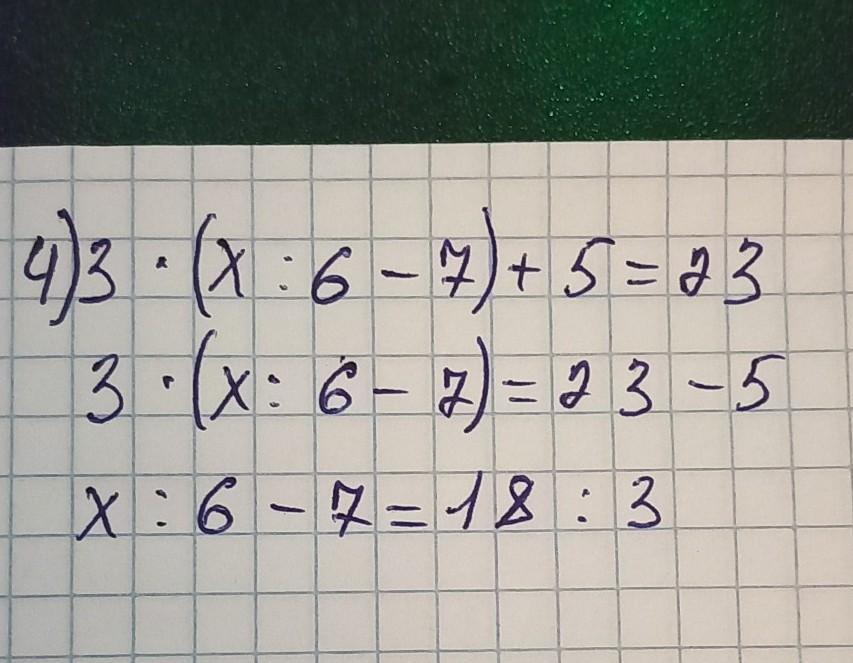 4) 3 · (x : 6 - 7) + 5 = 23
3 · (x : 6 - 7) = 23 - 5
x : 6 - 7 = 18 : 3